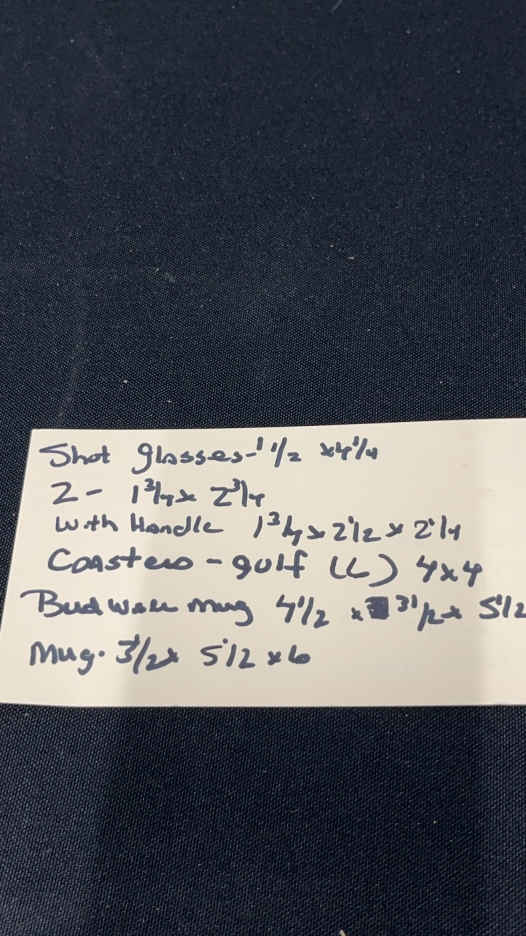 Shot glasses - 1 1/2 x 4 1/4
2 - 1 3/4 x 2 3/4
with Handle 1 3/4 x 2 1/2 x 2 1/4
Coasters - golf (L) 4x4
mug 4 1/2 x 3 1/2 x 5 1/2
Mug. 3 1/2 x 5 1/2 x 6